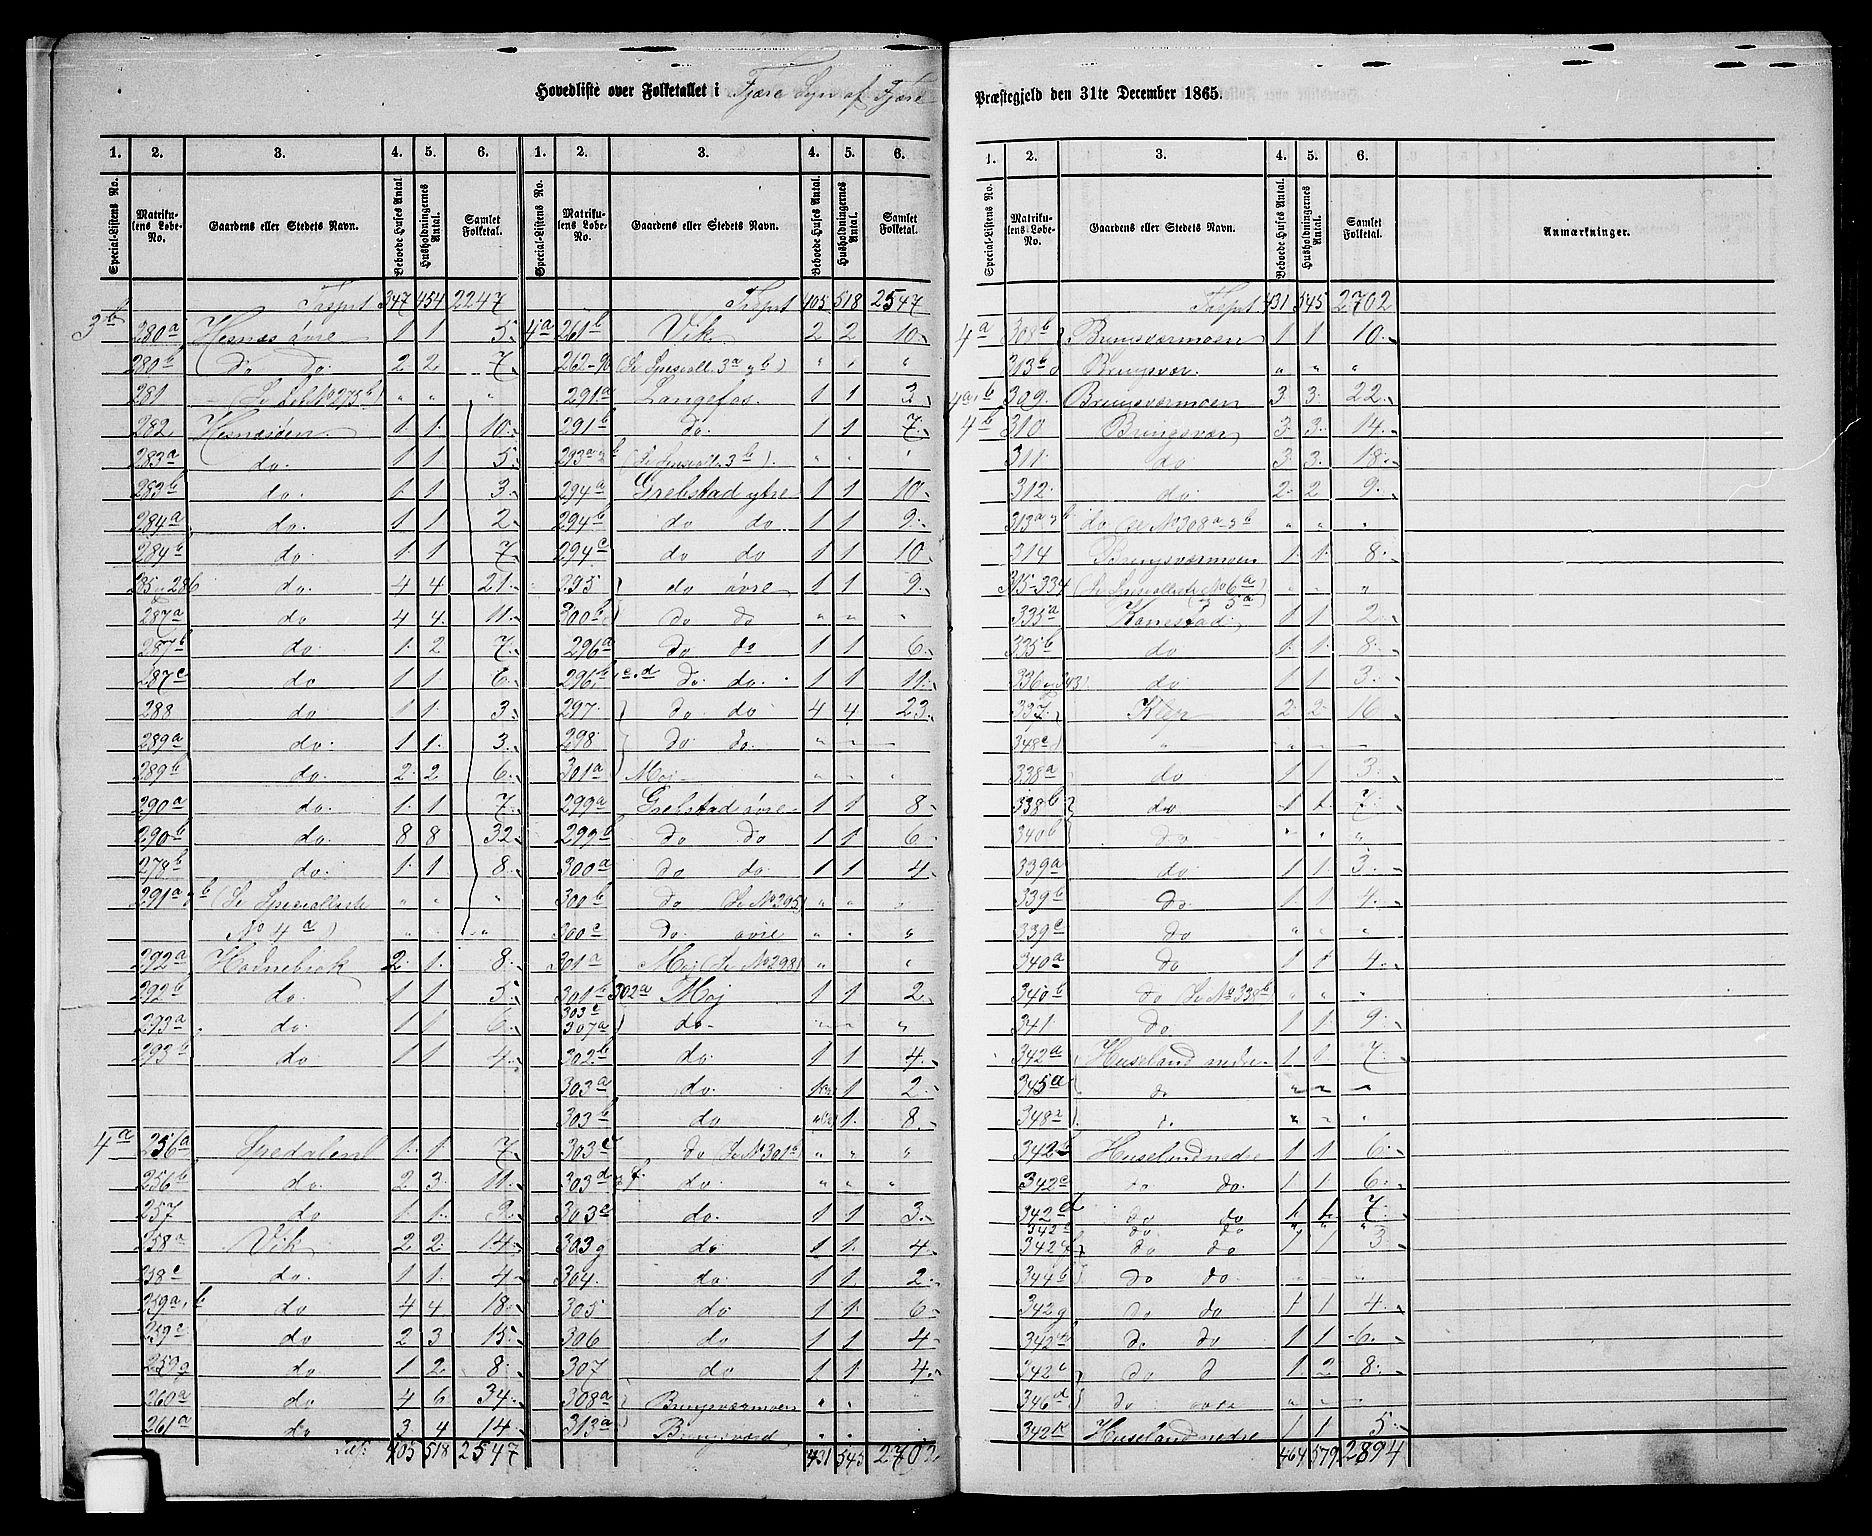 Hovedliste over Folketallet i Fjære Sogn af Fjære Præstegjeld den 31te December 1865.
1. 2. 3. 4. 5. 6. 1. 2. 3. 4. 5. 6.
Special-Listens No. Matrikulens Løbe-No. Gaardens eller Stedets Navn. Beboede Huses Antal. Husholdningernes Antal. Samlet Folketal. Special-Listens No. Matrikulens Løbe-No. Gaardens eller Stedets Navn. Beboede Huses Antal. Husholdningernes Antal. Samlet Folketal.
Trspt 347 454 2247
3b 280a Hesnæs øvre 1 1 5
280b do do 2 2 7
281 " " "
282 Hesnæsøen 1 1 10
283a do 1 1 5
283b do 1 1 3
284a do 1 1 2
284b do 1 1 7
285-286 do 4 4 21
287a do 4 4 11
287b do 1 2 7
287c do 1 1 6
288 do 1 1 3
289a do 1 1 3
289b do 2 2 6
290a do 1 1 7
290b do 8 8 32
278b do 1 1 8
291a, b (Se Speciallliste " " "
No 4a) " " "
292a Hornebrok 2 1 8
292b do 1 1 5
293a do 1 1 6
293b do 1 1 4
4a 256a Spedalen 1 1 7
256b do 2 3 11
257 do 1 1
258a Vik 2 2 14
258c do 1 1 4
259a, b do 4 4 18
259c do 2 3 15
259g do 1 2 8
260a do 4 6 34
261a do 3 4 14
405 518 2547
Trspt 405 518 2547
4a 261b Vik 2 2 10
262-90 (Se Speciall. 3a og b) " " "
291a Langefos 1 1 3
291b do 1 1 7
293a, b (Se Speciall. 3b) " " "
294a Grebstad ytre 1 1 10
294b do do 1 1 9
294c do do 1 1 10
295 do øvre 1 1 9
300b do do " " "
296a do do 1 1 6
296b, c, d do do 1 1 11
297 do do 4 4 23
298 do do " " "
301a Moj " " "
299a Grebstad øvre 1 1 8
299b do do 1 1 6
300a do do 1 1 4
300b do (Se No 295) " " "
300c do øvre " " "
301a Moj (Se No 298) " "
301b 302a Moj 1 1 2
303c 307a do " " "
302b do 1 1 4
303a do 1 1 2
303b do " 1 8
303c do (Se No 301b) " " "
303d, f " " "
303e do 1 1 3
303g do 1 1 4
304 do 1 1 2
305 do 1 1 6
306 do 1 1 4
307 do 1 1 4
308a Bringsværmoen " "
313a Bringsværd " "
431 545 2702
1. 2. 3. 4. 5. 6.
Special-Listens No. Matrikulens Løbe-No. Gaardens eller Stedets Navn. Beboede Huses Antal. Husholdningernes Antal. Samlet Folketal. Anmærkninger.
Trspt 431 545 2702
4a 308b Bringsværmoen 1 1 10
313b Bringsvær " " "
4a, b 309 Bringsværmoen 3 3 22
4b 310 Bringsvær 3 3 14
311 do 3 3 18
312 do 2 2 9
313a, b do (Se No 308a-b) " " "
314 Bringsværmoen 1 1 8
315-334 (Se Specialliste No 6a) " " "
335a 1 1 2
335b do 1 1 8
336 og 343 do 1 1 3
337 2 2 16
348c " " " "
338a do 1 1 3
338b do 1 1 7
340b do " " "
339a do 1 1 3
339b do 1 1 4
339c do " " "
340a do 1 1 4
340b do (Se No 338b) " " "
341 do 1 1 9
342a Huseland nedre 1 1 7
345a do " " "
348a do " " "
342b Huseland nedre 1 1 6
342c do do 1 1 6
342d do do 1 1 7
342e do do " " "
342f do do 1 1 3
344b do do " " "
342g do do 1 1 4
342h do do 1 1 6
342i do d 1 2 8
346d do øvre " " "
342k Huseland nedre 1 1 5
464 579 2894